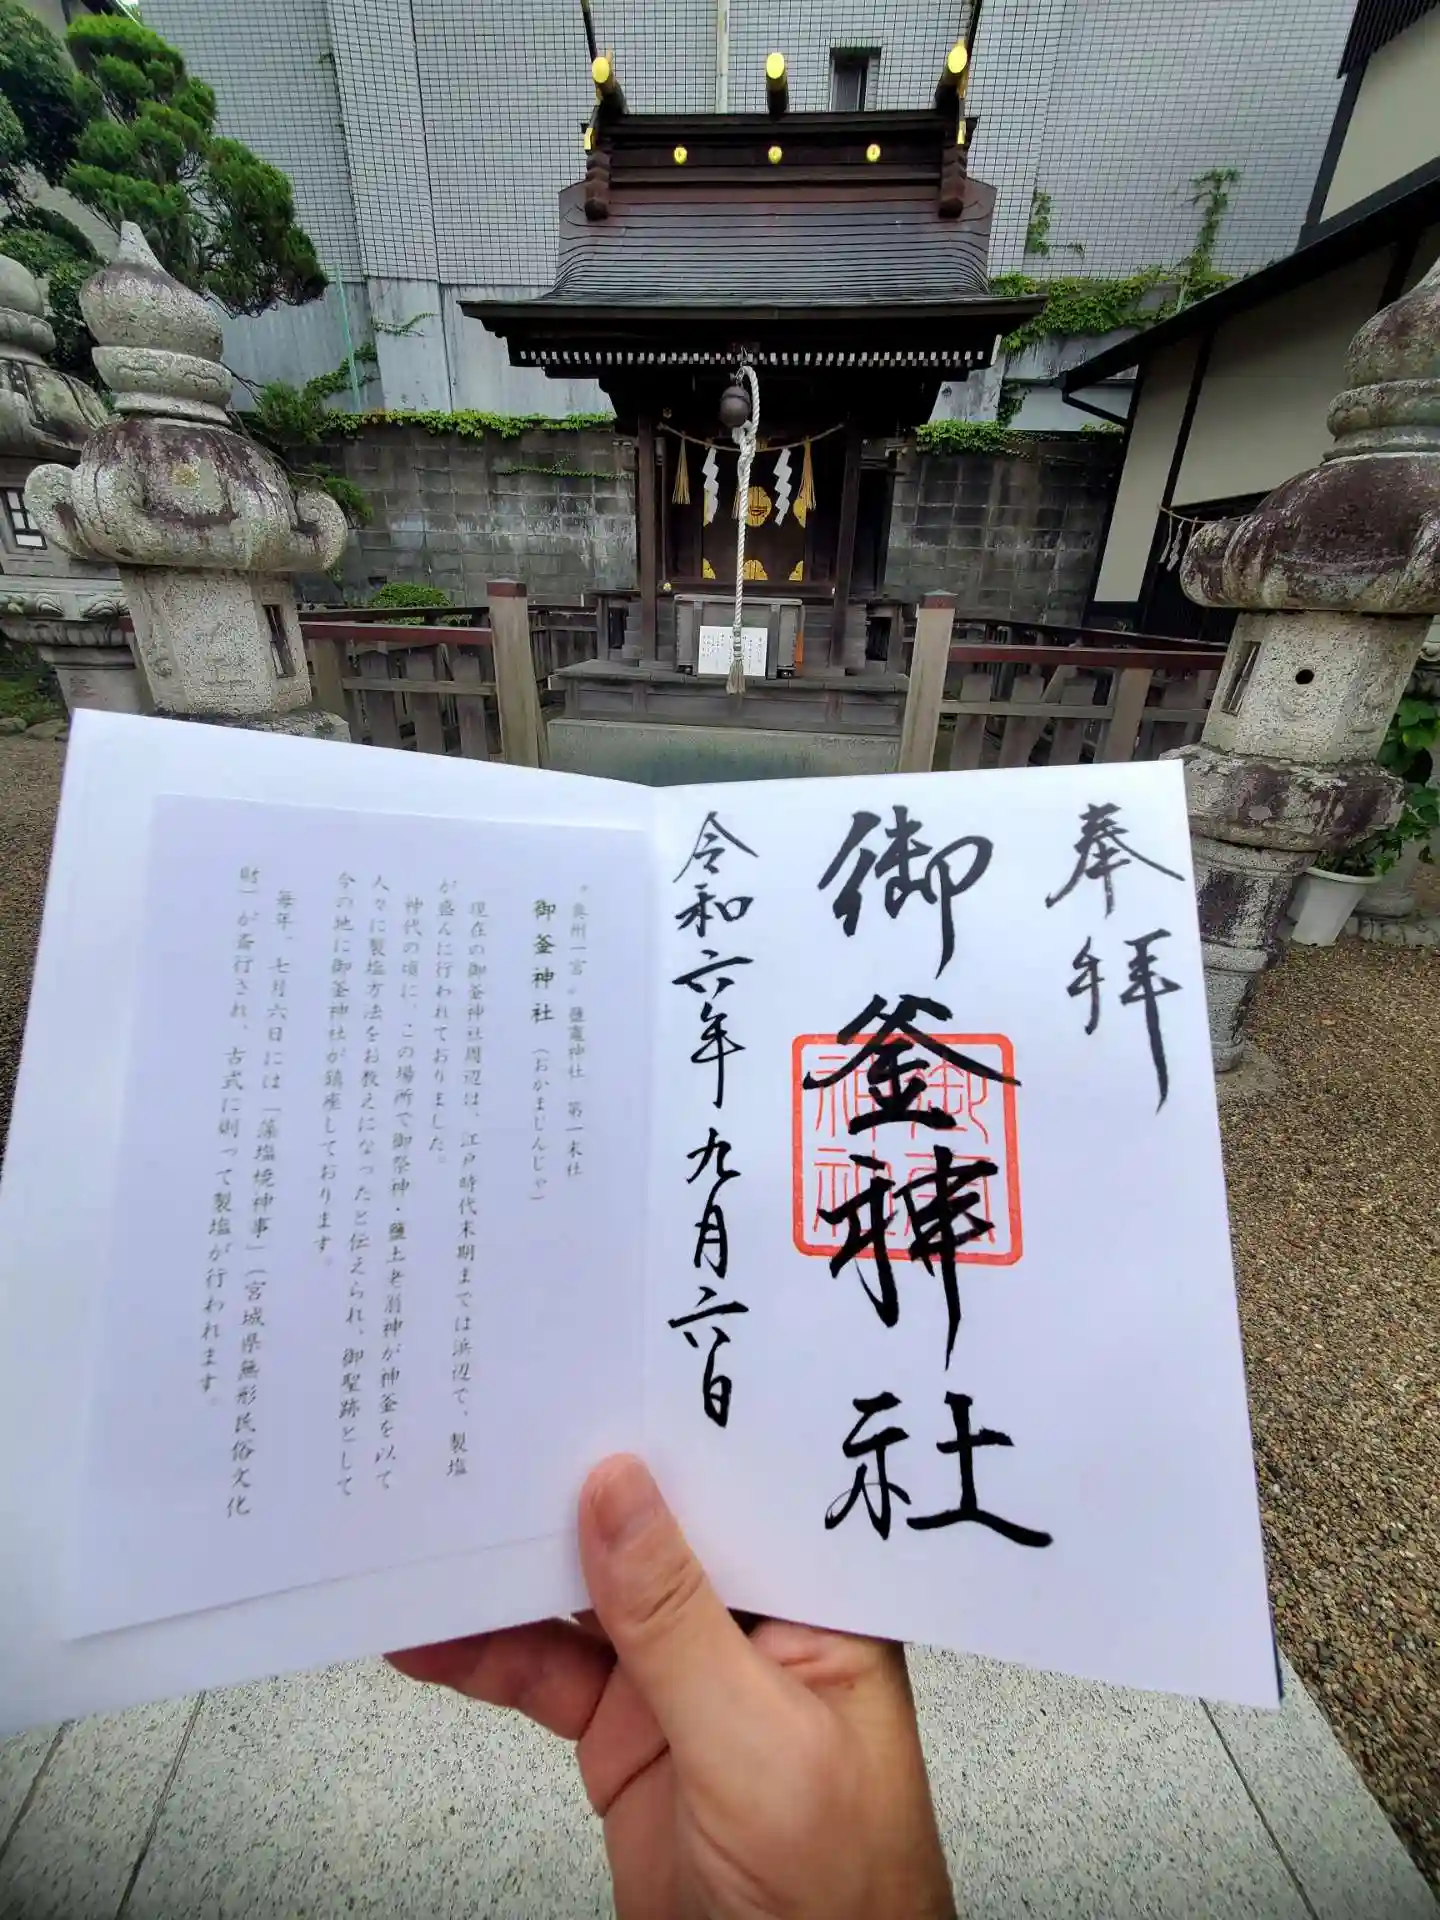 奉拝
御釜神社
令和六年九月六日
"奥州一宮" 鹽竈神社 第一末社
御釜神社 (おかまじんじゃ)
現在の御釜神社周辺は、江戸時代末期までは浜辺で、製塩
が盛んに行われておりました。
神代の頃に、この場所で御祭神・鹽土老翁神が神釜を以て
人々に製塩方法をお教えになったと伝えられ、御聖跡として
今の地に御釜神社が鎮座しております。
毎年、七月六日には「藻塩焼神事」(宮城県無形民俗文化
財)が斎行され、古式に則って製塩が行われます。